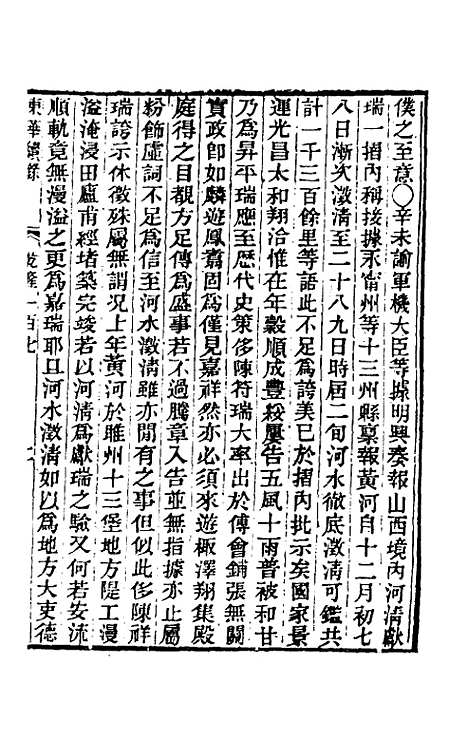 僕之至意〇辛未諭軍機大臣等據明興奏報山西境內河清獻
瑞一摺內稱接據永甯州等十三州縣稟報黃河自十二月初七
八日漸次澂清至二十八九日時屆二旬河水徹底澂清可鑑共
計一千三百餘里等語此不足爲誇美已於摺內批示矣國家景
運光昌太和翔洽惟在年穀順成豐綏屢告五風十雨普被和甘
乃爲昇平瑞應至歷代史策侈陳符瑞大率出於傅會鋪張無關
實政即如麟遊鳳嘉固爲僅見嘉祥然亦必須來遊椒澤翔集殿
庭得之目覩方足傳爲盛事若不過騰章入告並無指據亦止屬
粉飾虛詞不足爲信至河水澂清雖亦閒有之事但似此侈陳祥
瑞誇示休徵殊屬無謂況上年黃河於睢州十三堡地方隄工漫
溢淹浸田廬甫經堵築完竣若以河清爲獻瑞之驗又何若安流
順軌竟無漫溢之更爲嘉瑞耶且河水澂清如以爲地方大吏德
東華續錄 乾隆一百七